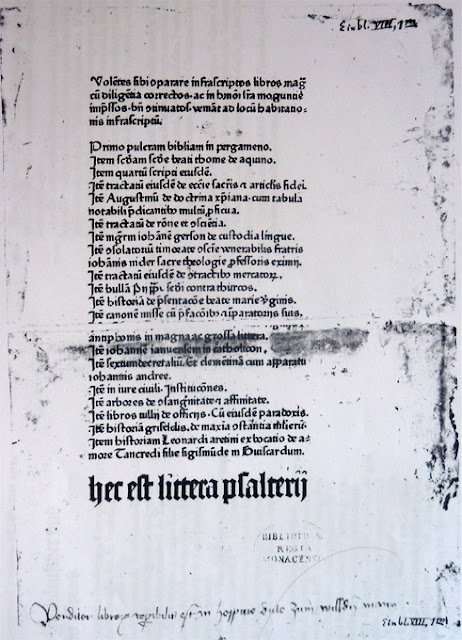 Einbl. VIII, 1 m
Volētes sibi ɔparare infrascriptos libros mag̃
cū diligētia correctos. ac in hmōi lr̄a moguntie
imp̄ssos. bn̄ ɔtinuatos. veniāt ad locū habitatio⸗
nis infrascriptū.
Primo pulcram bibliam in pergameno.
Item scd̄am scd̄e beati thome de aquino.
Item quartū scripti eiusdē.
Itē tractatū eiusdē de eccīe sacrīs ⁊ articlīs fidei.
Itē Augustinū de doctrina xp̄iana. cum tabula
notabili p̄dicantibꝰ multū ꝓficua.
Itē tractatū de rōne et ɔsciētia.
Itē mgr̄m iohānē gerson de custodia lingue.
Itē ɔsolatoriū timorate ɔscīe venerabilis fratris
iohānis nider sacre theologie ꝓfessoris eximij.
Itē tractatū eiusdē de ɔtractibꝰ mercatoꝝ.
Itē bullā pij pp̄ scd̄i contra thurcos.
Itē historiā de p̄sentacōe beate marie v̓ginis.
Itē canonē misse cū p̄facōibꝰ ⁊ ip̄aratorijs suis.
antiphonis in magna ac grossa littera.
Itē iohannē ianuensem in catholicon.
Itē sextum decretaliū. Et clementinā cum apparatu
iohannis andree.
Itē in iure ciuili. Institucōnes.
Itē arbores de ɔsangwitate ⁊ affinitate.
Itē libros tullij de officijs. Cū eiusdē paradoxis.
Itē historiā griseldis. de maxīa ɔstantia mulieꝝ.
Item historiam Leonardi aretini ex bocatio de a⸗
more Tancredi filie sigismūde in Guiscardum.
hec est littera psalterij
BIBLIOTHECA
REGIA
MONACENSIS
Venditor librorum reperibilis est in hospicio dicto zum wilden mann
Einbl. VIII, 1 m